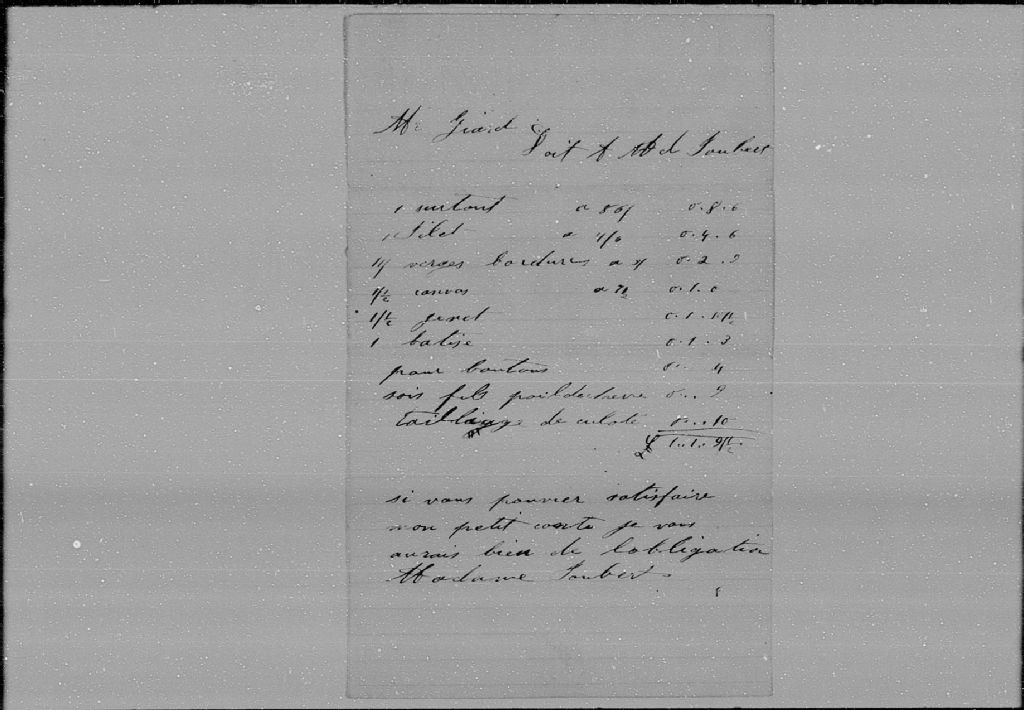 Mr Giard
Doit A Md Joubert
1 surtout a 8 6/ 0.8.6
1 Gilet a 4/6 0.4.6
verges bordures a 0.2.9
canvas a 0.1.0
1/½ genet 0.1.1/½
1 batise 0.1.3
pour boutons 0.. 4
sois fils poil de chevre 0.. 9
taillage de culote 0..10
£ 1.1.9/½
si vous pouvier satisfaire
mon petit conte je vous
aurais bien de lobligation
Madame Joubert